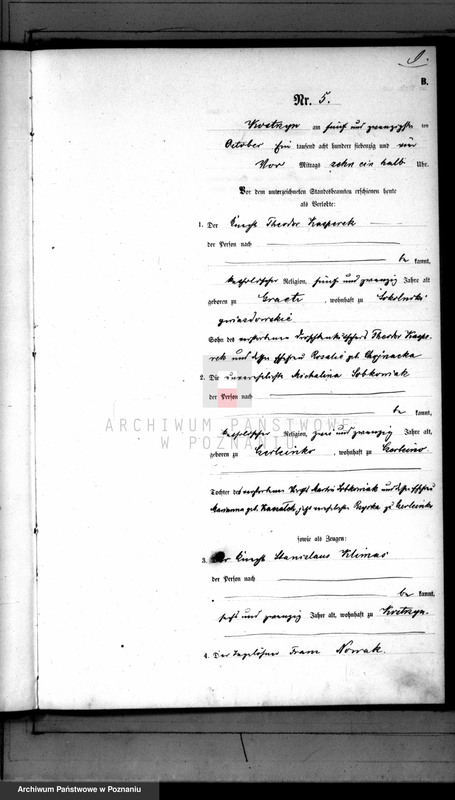 B.
Nr. 5.
Kostrzyn am fünf und zwanzigsten ten
October Ein tausend acht hundert siebenzig und vier
Vor Mittags zehn ein halb Uhr.
Vor dem unterzeichneten Standesbeamten erschienen heute
als Verlobte:
1. Der Knecht Theodor Kasperek
der Person nach
be kannt,
katholischer Religion, fünf und zwanzig Jahre alt
geboren zu Graetz, wohnhaft zu Sokolniki
gwiazdowskie
Sohn des verstorbenen Theodor Kaspe-
rek und dessen Ehefrau Rosalie geb. Chojnacka
2. Die unverehelichte Michalina Sobkowiak
der Person nach
be kannt,
katholischer Religion, zwei und zwanzig Jahre alt,
geboren zu, wohnhaft zu
Tochter des verstorbenen Martin Sobkowiak und dessen Ehefrau
Marianna geb. jetzt verehelichte zu
sowie als Zeugen:
3. Der Knecht Stanislaus Klimas
der Person nach
be kannt,
sechs und zwanzig Jahre alt, wohnhaft zu Kostrzyn.
4. Der Tagelöhner Franz Nowak.
ARCHIWUM PAŃSTWOWE
W POZNANIU
Archiwum Państwowe w Poznaniu